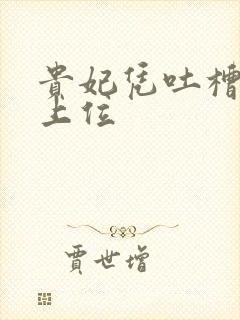 貴妃凭吐槽
上位
賈世增